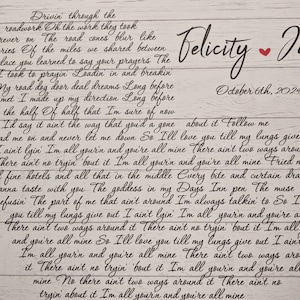 Drivin' through the
roadwork Oh the work they took
rever on The road cones blur like
ries Of the miles we shared between
lace you learned to say your prayers The
I took to prayin Loadin' in and breakin
My road dog door deal dreams Long before
met I made up my direction Long before
the half Of half that I'm sure of now
I'd say it ain't the way that you'd a gone about it Follow me
d me on and never let no down So I'll love you till my lungs give
I ain't lyin I'm all yourn and you're all mine There ain't two ways arou
here ain't no tryin' bout it I'm all yourn and you're all mine Fried
l fine hotels and all that in the middle Every bite and curtain dra
anna taste with you The goddess in my Days Inn pen The muse
efusin' The part of me that ain't around I'm always talkin' to So I
you till my lungs give out I ain't lyin I'm all yourn and you're a
There ain't two ways around it There ain't no tryin' bout it I'm all
and you're all mine So I'll love you till my lungs give out I ain
I'm all yourn and you're all mine There ain't two ways arou
it There ain't no tryin' bout it I'm all yourn and you're all
mine No there ain't two ways around it There ain't no
tryin about it I'm all yourn and you're all mine
Felicity ♥ J
October 6th, 202